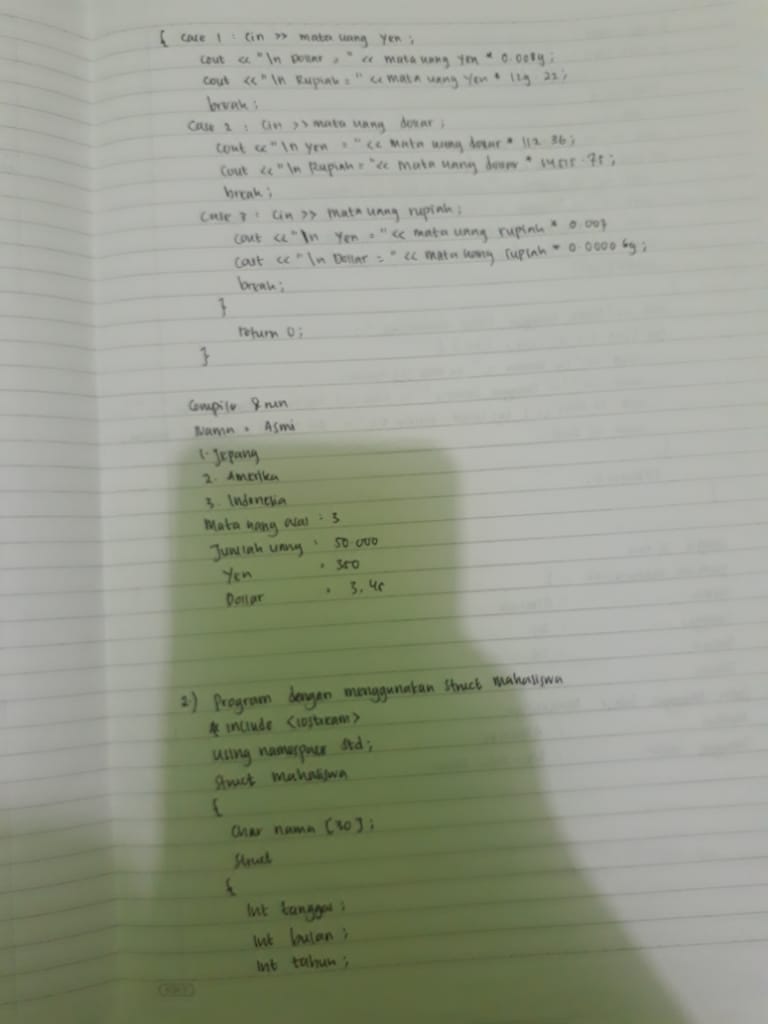 { case 1 : Cin >> mata uang yen ;
cout << "\n Dollar = " << mata uang yen * 0.0089 ;
cout << "\n Rupiah = " << mata uang yen * 129.22 ;
break ;
Case 2 : Cin >> mata uang dollar ;
cout << "\n yen = " << mata uang dollar * 112.36 ;
cout << "\n Rupiah = " << mata uang dollar * 14515.75 ;
break ;
Case 3 : Cin >> mata uang rupiah ;
cout << "\n Yen = " << mata uang rupiah * 0.007
cout << "\n Dollar = " << mata uang rupiah * 0.000069 ;
break ;
}
return 0 ;
}
Compile & run
Nama = Asmi
1. Jepang
2. Amerika
3. Indonesia
Mata uang asal : 3
Jumlah uang : 50.000
Yen = 350
Dollar = 3.45
2.) Program dengan menggunakan struct mahasiswa
# include <iostream>
using namespace std ;
Struct mahasiswa
{
Char nama [30] ;
Struct
{
Int tanggal ;
Int bulan ;
Int tahun ;